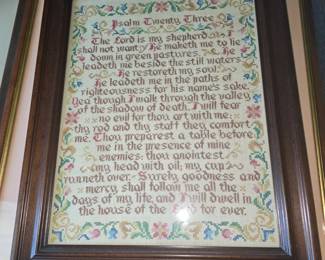 Psalm Twenty Three
The Lord is my shepherd I
shall not want He maketh me to lie
down in green pastures. He
leadeth me beside the still waters
He restoreth my soul.
He leadeth me in the paths of
righteousness for his name's sake.
Yea though I walk through the valley
of the shadow of death, I will fear
no evil for thou art with me:
thy rod and thy staff they comfort
me. Thou preparest a table before
me in the presence of mine
enemies: thou anointest
my head with oil; my cup
runneth over. Surely goodness and
mercy, shall follow me all the
days of my life, and I will dwell in
the house of the Lord for ever.